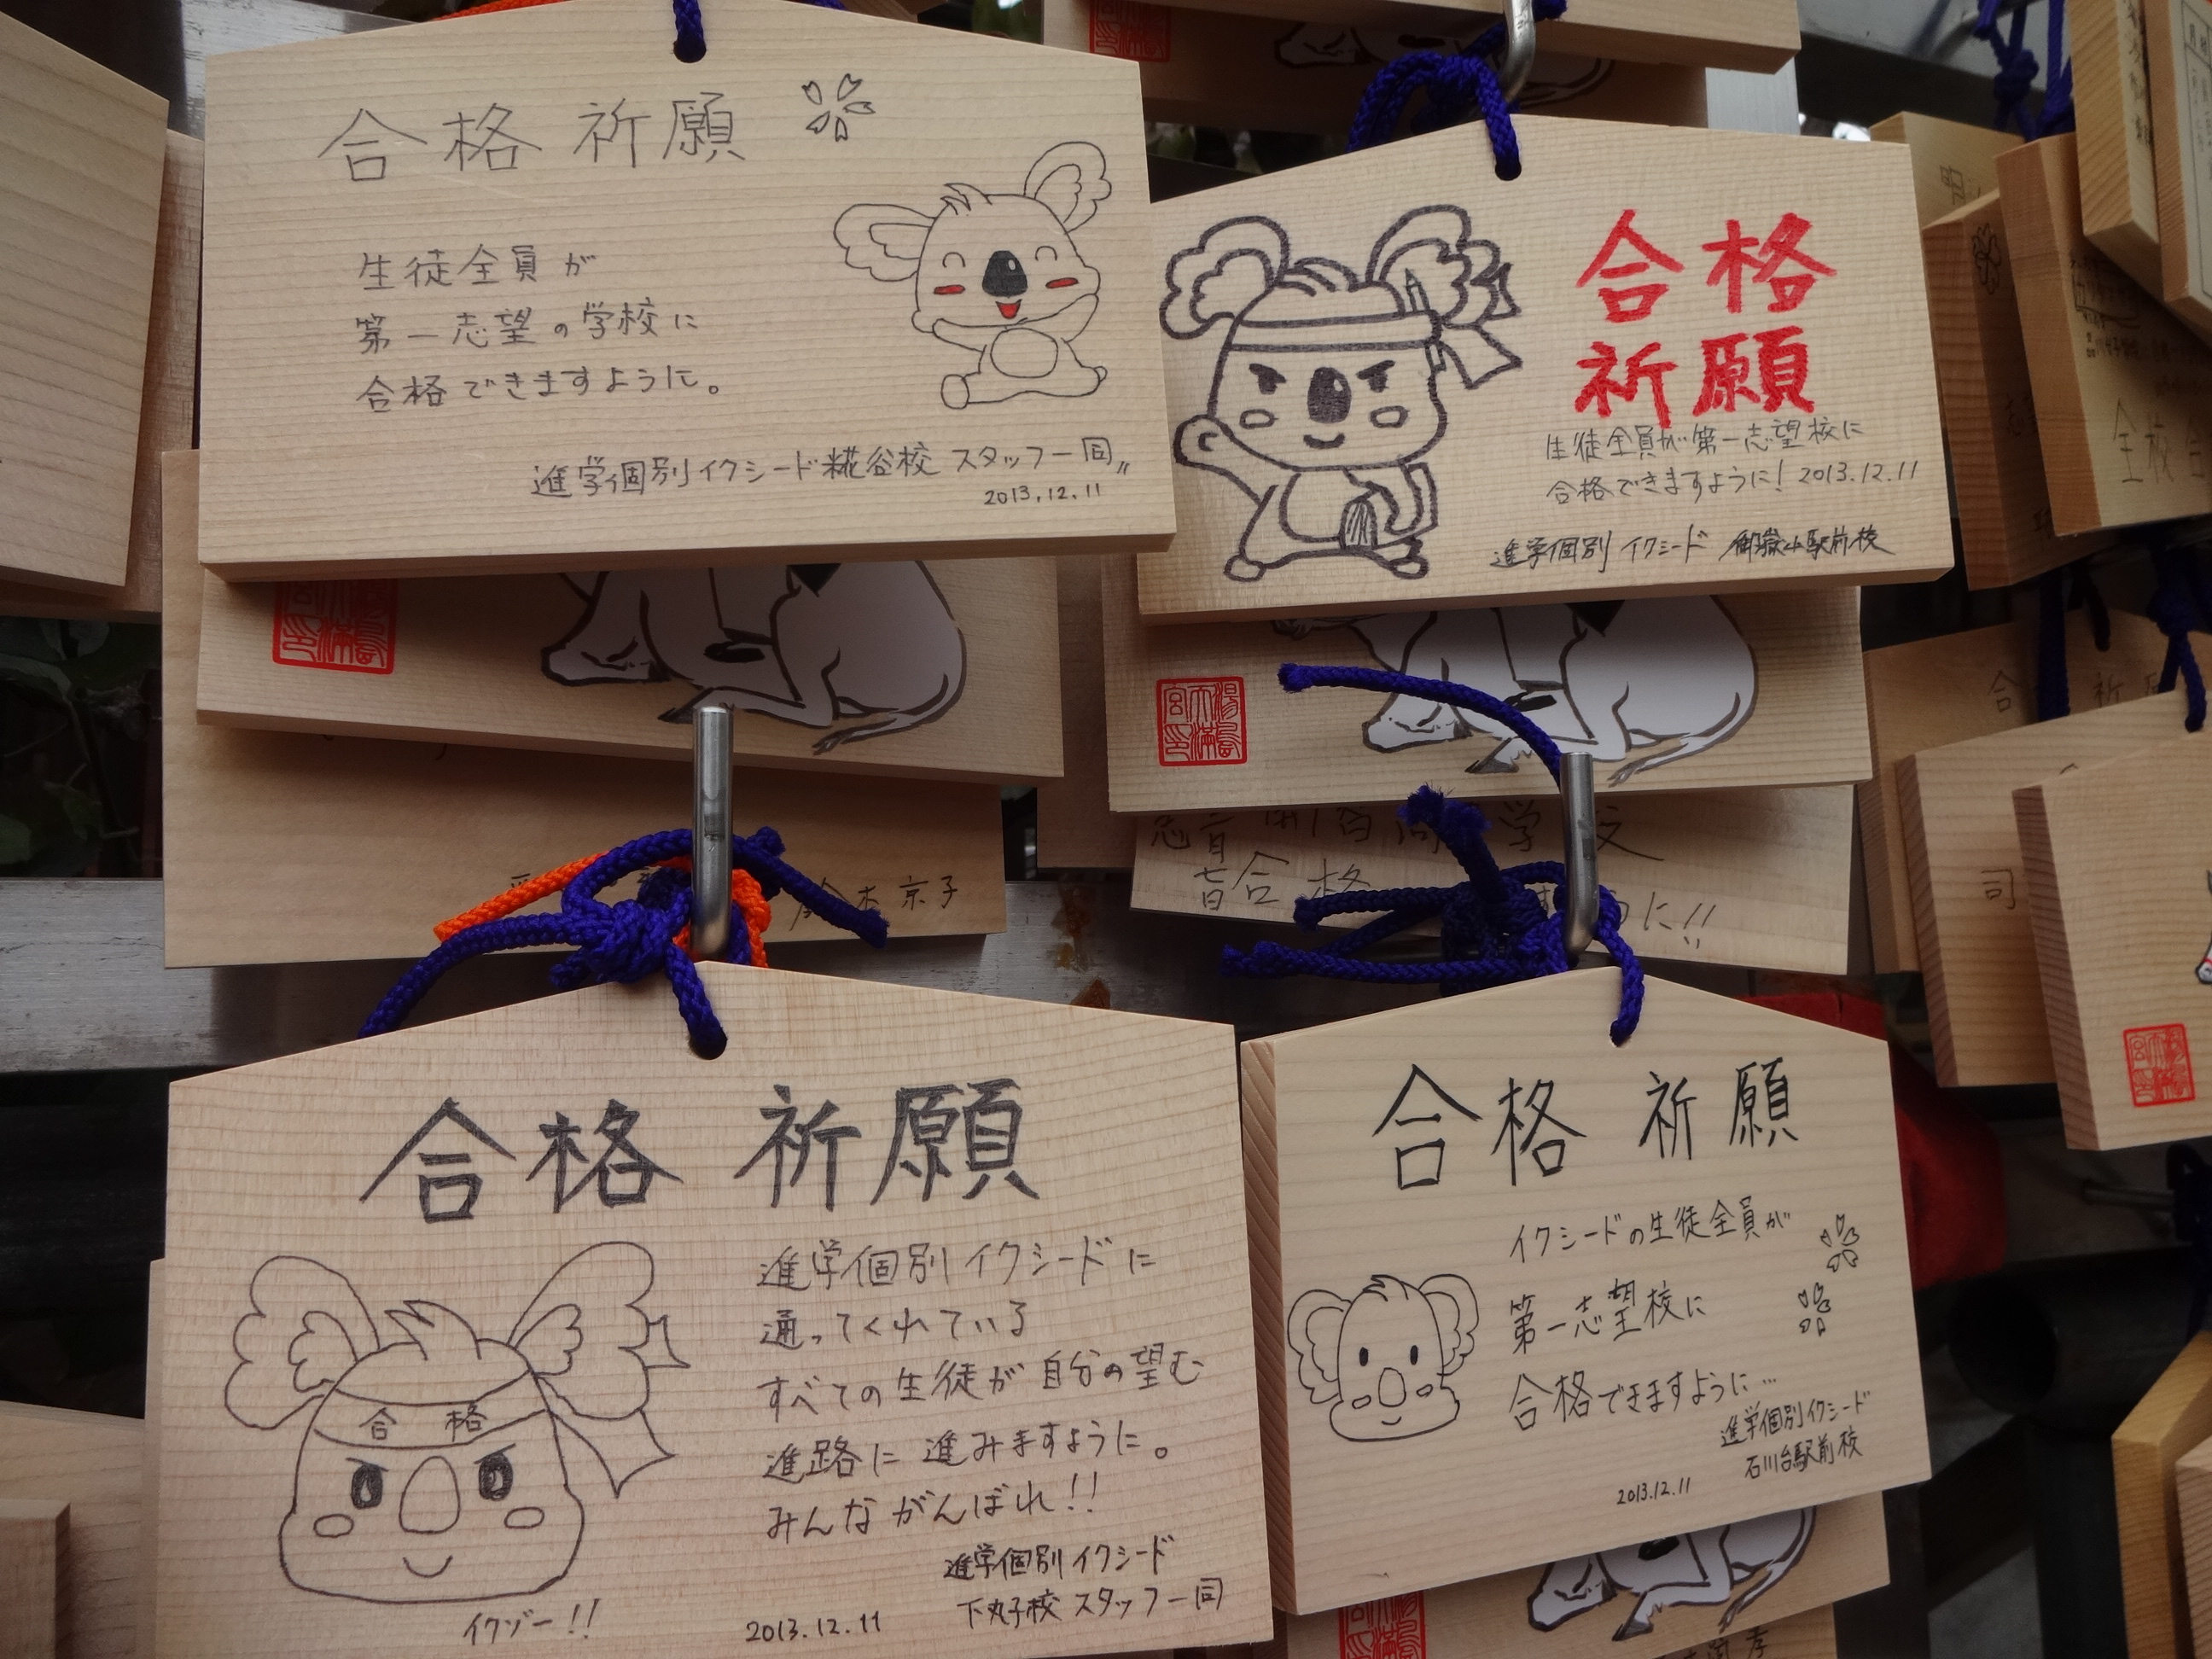 合格祈願
生徒全員が
第一志望の学校に
合格できますように。
進学個別イクシード糀谷校 スタッフ一同
2013.12.11
合格
祈願
生徒全員が第一志望校に
合格できますように! 2013.12.11
進学個別 イクシード 御嶽山駅前校
湯島天満宮
京子
合格
に!!
合格 祈願
進学個別イクシードに
通ってくれている
すべての生徒が自分の望む
進路に進みますように。
みんながんばれ!!
合格
イクゾー!!
進学個別イクシード
下丸子校 スタッフ一同
2013.12.11
合格 祈願
イクシードの生徒全員が
第一志望校に
合格できますように…
進学個別イクシード
石川台駅前校
2013.12.11
合
祈
司
全校合